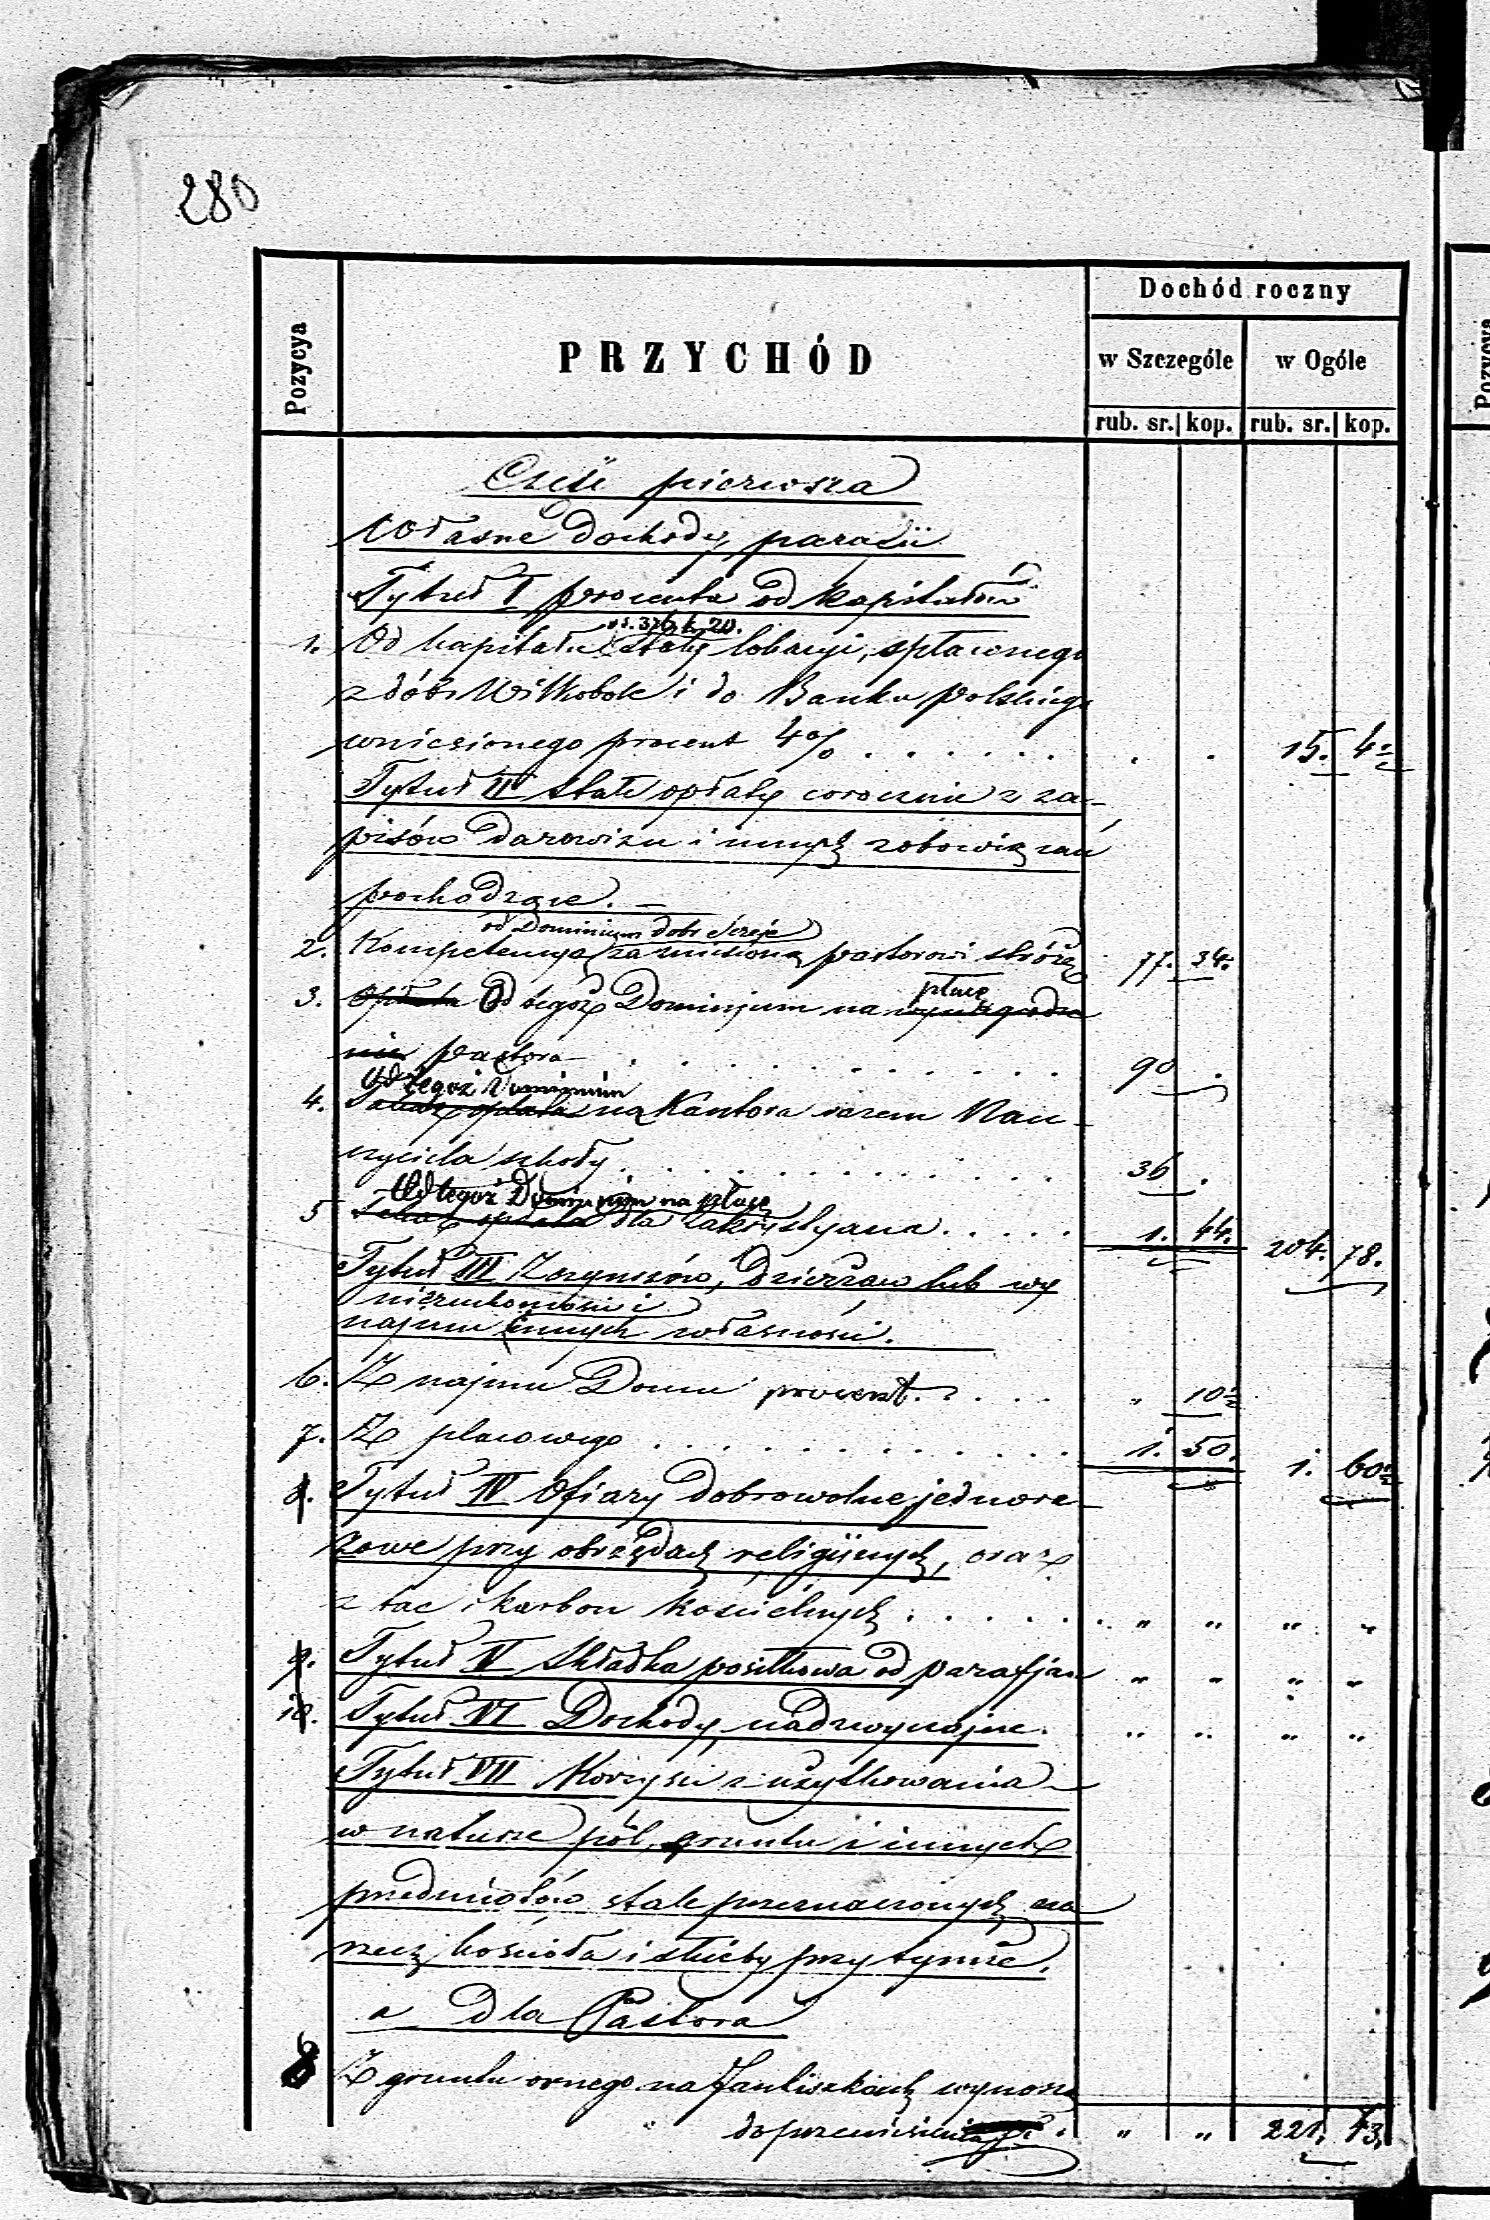 280
Pozycya
PRZYCHÓD
Dochód roczny
w Szczególe w Ogóle
rub. sr. kop. rub. sr. kop.
Część pierwsza
Własne Dochody parafii
Tytuł I procenta od Kapitałów
rs. 376 k. 20.
1. Od kapitału spłaconego
z dóbr Wilkobole i do Banku Polskiego
wniesionego procent 4% . . . . . . 15. 4½
Tytuł II Stałe opłaty corocznie z za-
pisów Darowizn i innych zobowiązań
pochodzące. —
od Dominium dobr Sereje
2. Kompetencya zamieniona pastorowi 77. 34.
płacę
3. Opłata Od tegoż Dominjum na wynagrodze
nie pastora . . . . . . . . . 90 .
Od tegoż Dominium
4. Takaż opłata na Kantora razem Nau-
czyciela szkoły . . . . . . . . . 36 .
Od tegoż Dominium na płacę
5 Takaż opłata dla Zakrystyana . . . . . 1. 44. 204. 78.
Tytuł III Z czynszów, Dzierżaw lub wy
nieruchomości i
najmu innych własności.
6. Z najmu Domu procent . . . . . „ 10½
7. Z placowego . . . . . . . . . . 1. 50. 1. 60½
8. Tytuł IV Ofiary dobrowolne, jednora-
zowe przy obrzędach religijnych, oraz
z tac i karbon Kościelnych . . . . . „ „ „ „
9. Tytuł V Składka posiłkowa od parafjan „ „ „ „
10. Tytuł VI Dochody nadzwyczajne. „ „ „ „
Tytuł VII Korzyści z użytkowania
w naturze pól, gruntu i innych
przedmiotów stale przeznaczonych na
rzecz kościoła i służby przy tymże.
a Dla Pastora
8 Z gruntu ornego na Janliszkach wynosi
do przeniesienia „ „ 221. 43.